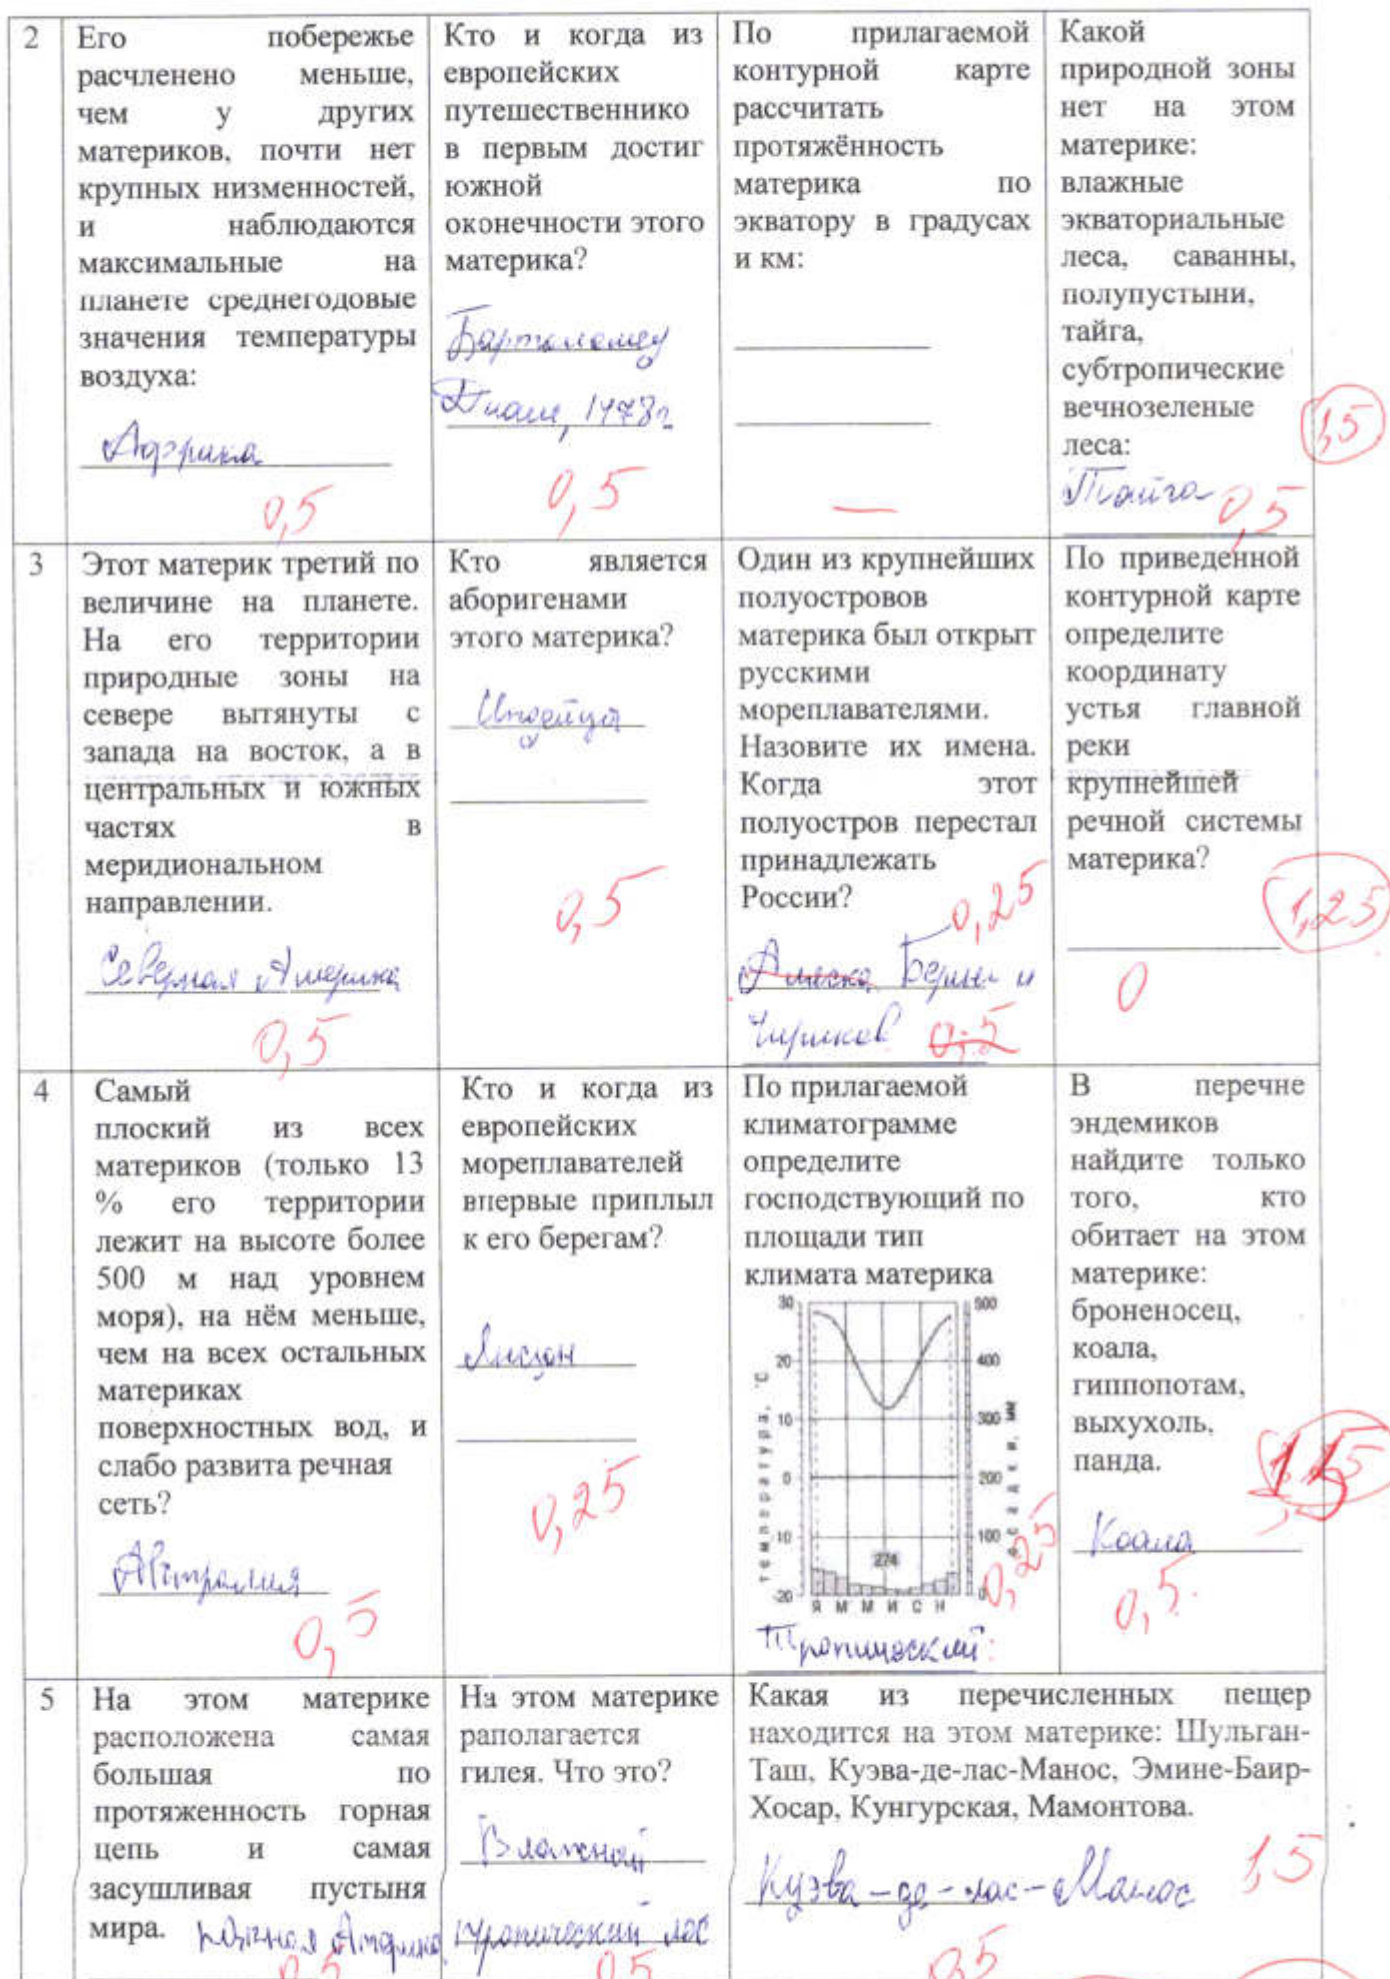 2
Его побережье
расчленено меньше,
чем у других
материков, почти нет
крупных низменностей,
и наблюдаются
максимальные на
планете среднегодовые
значения температуры
воздуха:
Африка
0,5
Кто и когда из
европейских
путешественнико
в первым достиг
южной
оконечности этого
материка?
Бартоломеу
Диаш, 1478г
0,5
По прилагаемой
контурной карте
рассчитать
протяжённость
материка по
экватору в градусах
и км:
—
Какой
природной зоны
нет на этом
материке:
влажные
экваториальные
леса, саванны,
полупустыни,
тайга,
субтропические
вечнозеленые
леса:
Тайга
0,5
1,5
3
Этот материк третий по
величине на планете.
На его территории
природные зоны на
севере вытянуты с
запада на восток, а в
центральных и южных
частях в
меридиональном
направлении.
Северная Америка
0,5
Кто является
аборигенами
этого материка?
Индейцы
0,5
Один из крупнейших
полуостровов
материка был открыт
русскими
мореплавателями.
Назовите их имена.
Когда этот
полуостров перестал
принадлежать
России?
0,25
Аляска Беринг и
Чириков 0,5
По приведенной
контурной карте
определите
координату
устья главной
реки
крупнейшей
речной системы
материка?
0
1,25
4
Самый
плоский из всех
материков (только 13
% его территории
лежит на высоте более
500 м над уровнем
моря), на нём меньше,
чем на всех остальных
материках
поверхностных вод, и
слабо развита речная
сеть?
Австралия
0,5
Кто и когда из
европейских
мореплавателей
впервые приплыл
к его берегам?
Янсзон
0,25
По прилагаемой
климатограмме
определите
господствующий по
площади тип
климата материка
30 500
20 400
10 300
0 200
-10 100
-20 0
температура, °С
осадки, мм
274
Я М М И С Н
0,25
Тропический
В перечне
эндемиков
найдите только
того, кто
обитает на этом
материке:
броненосец,
коала,
гиппопотам,
выхухоль,
панда.
Коала
0,5
5
На этом материке
расположена самая
большая по
протяженность горная
цепь и самая
засушливая пустыня
мира. Южная Америка
0,5
На этом материке
раполагается
гилея. Что это?
Влажный
тропический лес
0,5
Какая из перечисленных пещер
находится на этом материке: Шульган-
Таш, Куэва-де-лас-Манос, Эмине-Баир-
Хосар, Кунгурская, Мамонтова.
Куэва-де-лас-Манос
1,5
0,5